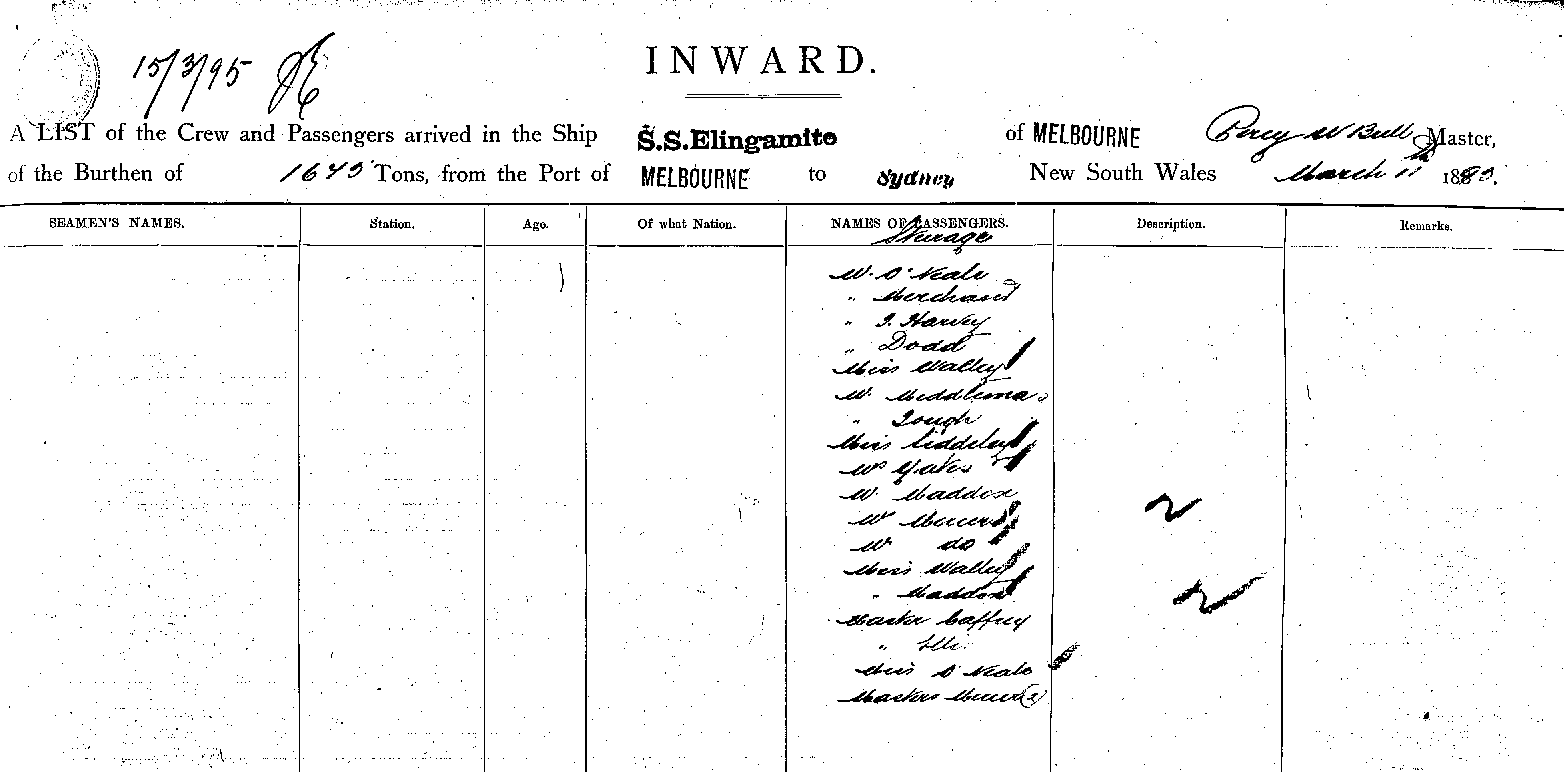 15/3/95
INWARD.
A LIST of the Crew and Passengers arrived in the Ship S.S.Elingamite of MELBOURNE Percy W Bull Master,
of the Burthen of 1645 Tons, from the Port of MELBOURNE to Sydney New South Wales March 11th 18
SEAMEN'S NAMES. Station. Age. Of what Nation. NAMES OF PASSENGERS. Description. Remarks.
Steerage
W. O'Neale
" Merchant
" J. Harvey
" Dodd
Miss Walley
" Gough
Miss Siddeley
Yates
Maddox
do
Miss Walley
" Maddox
Master Caffrey
Miss O'Neale
Masters (2)